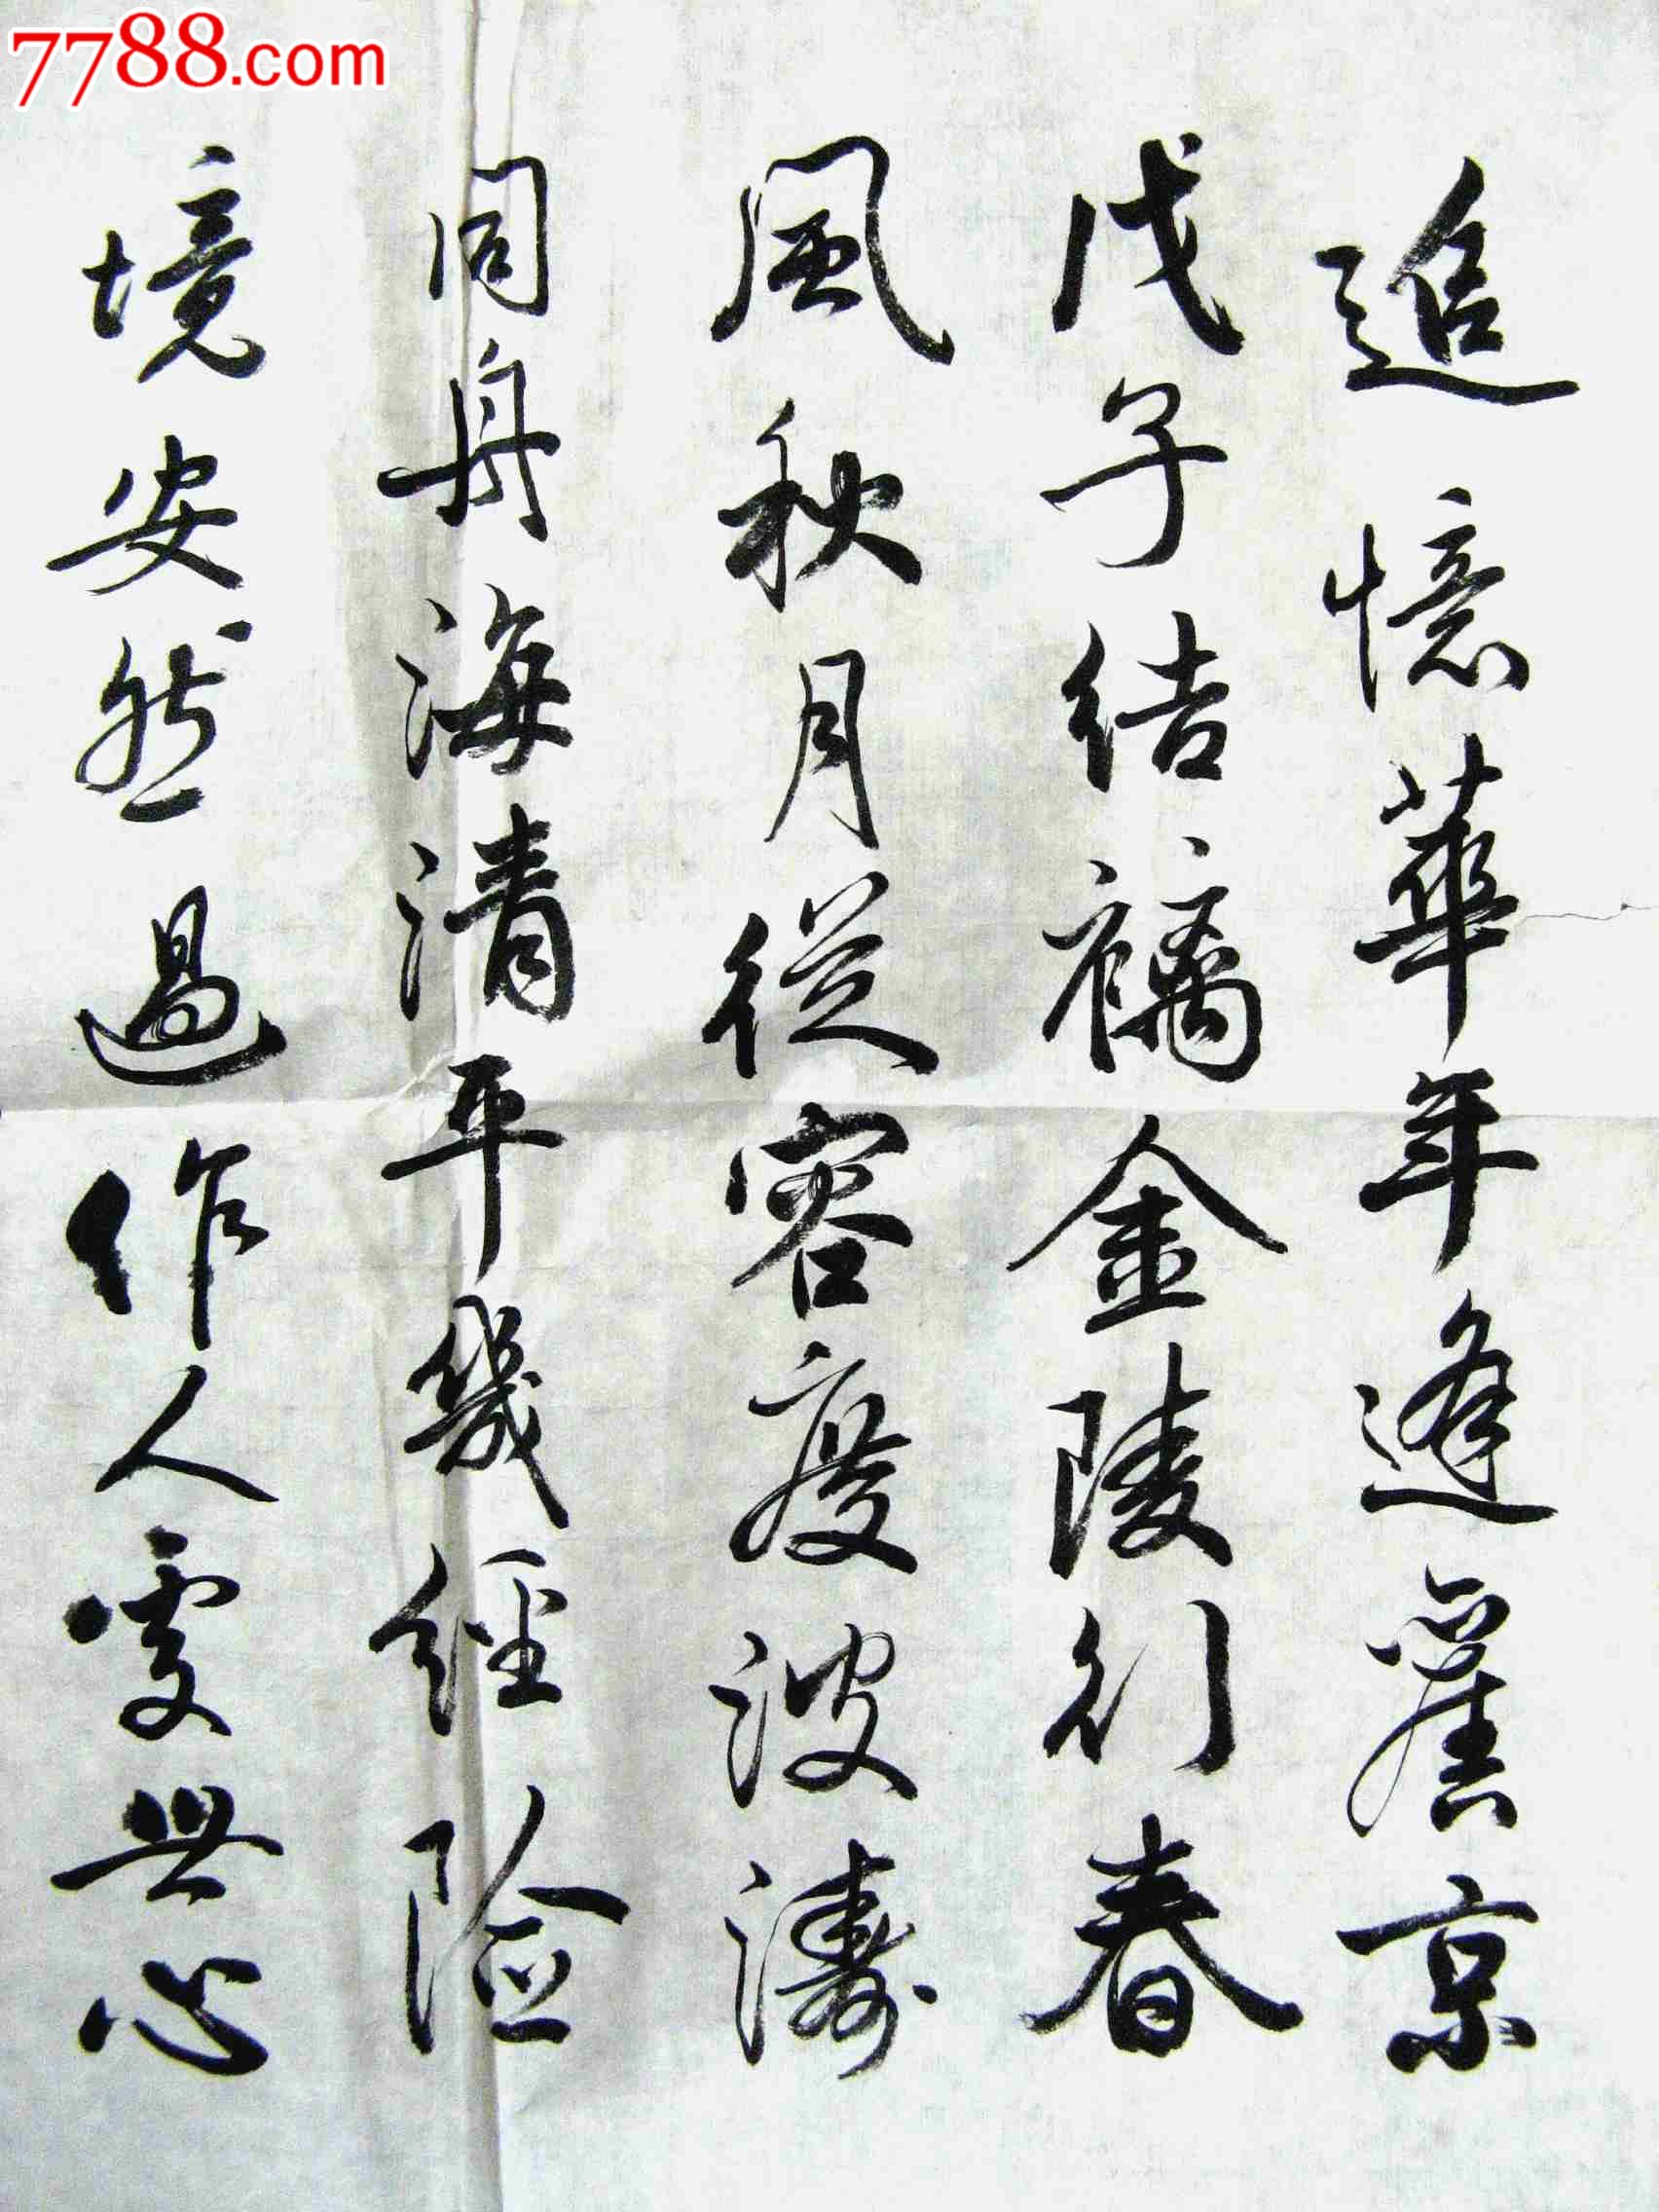 7788.com
追憶華年逢舊京
戊子結褵金陵行春
風秋月從容度波濤
同舟海清平幾經險
境安然過作人處世心